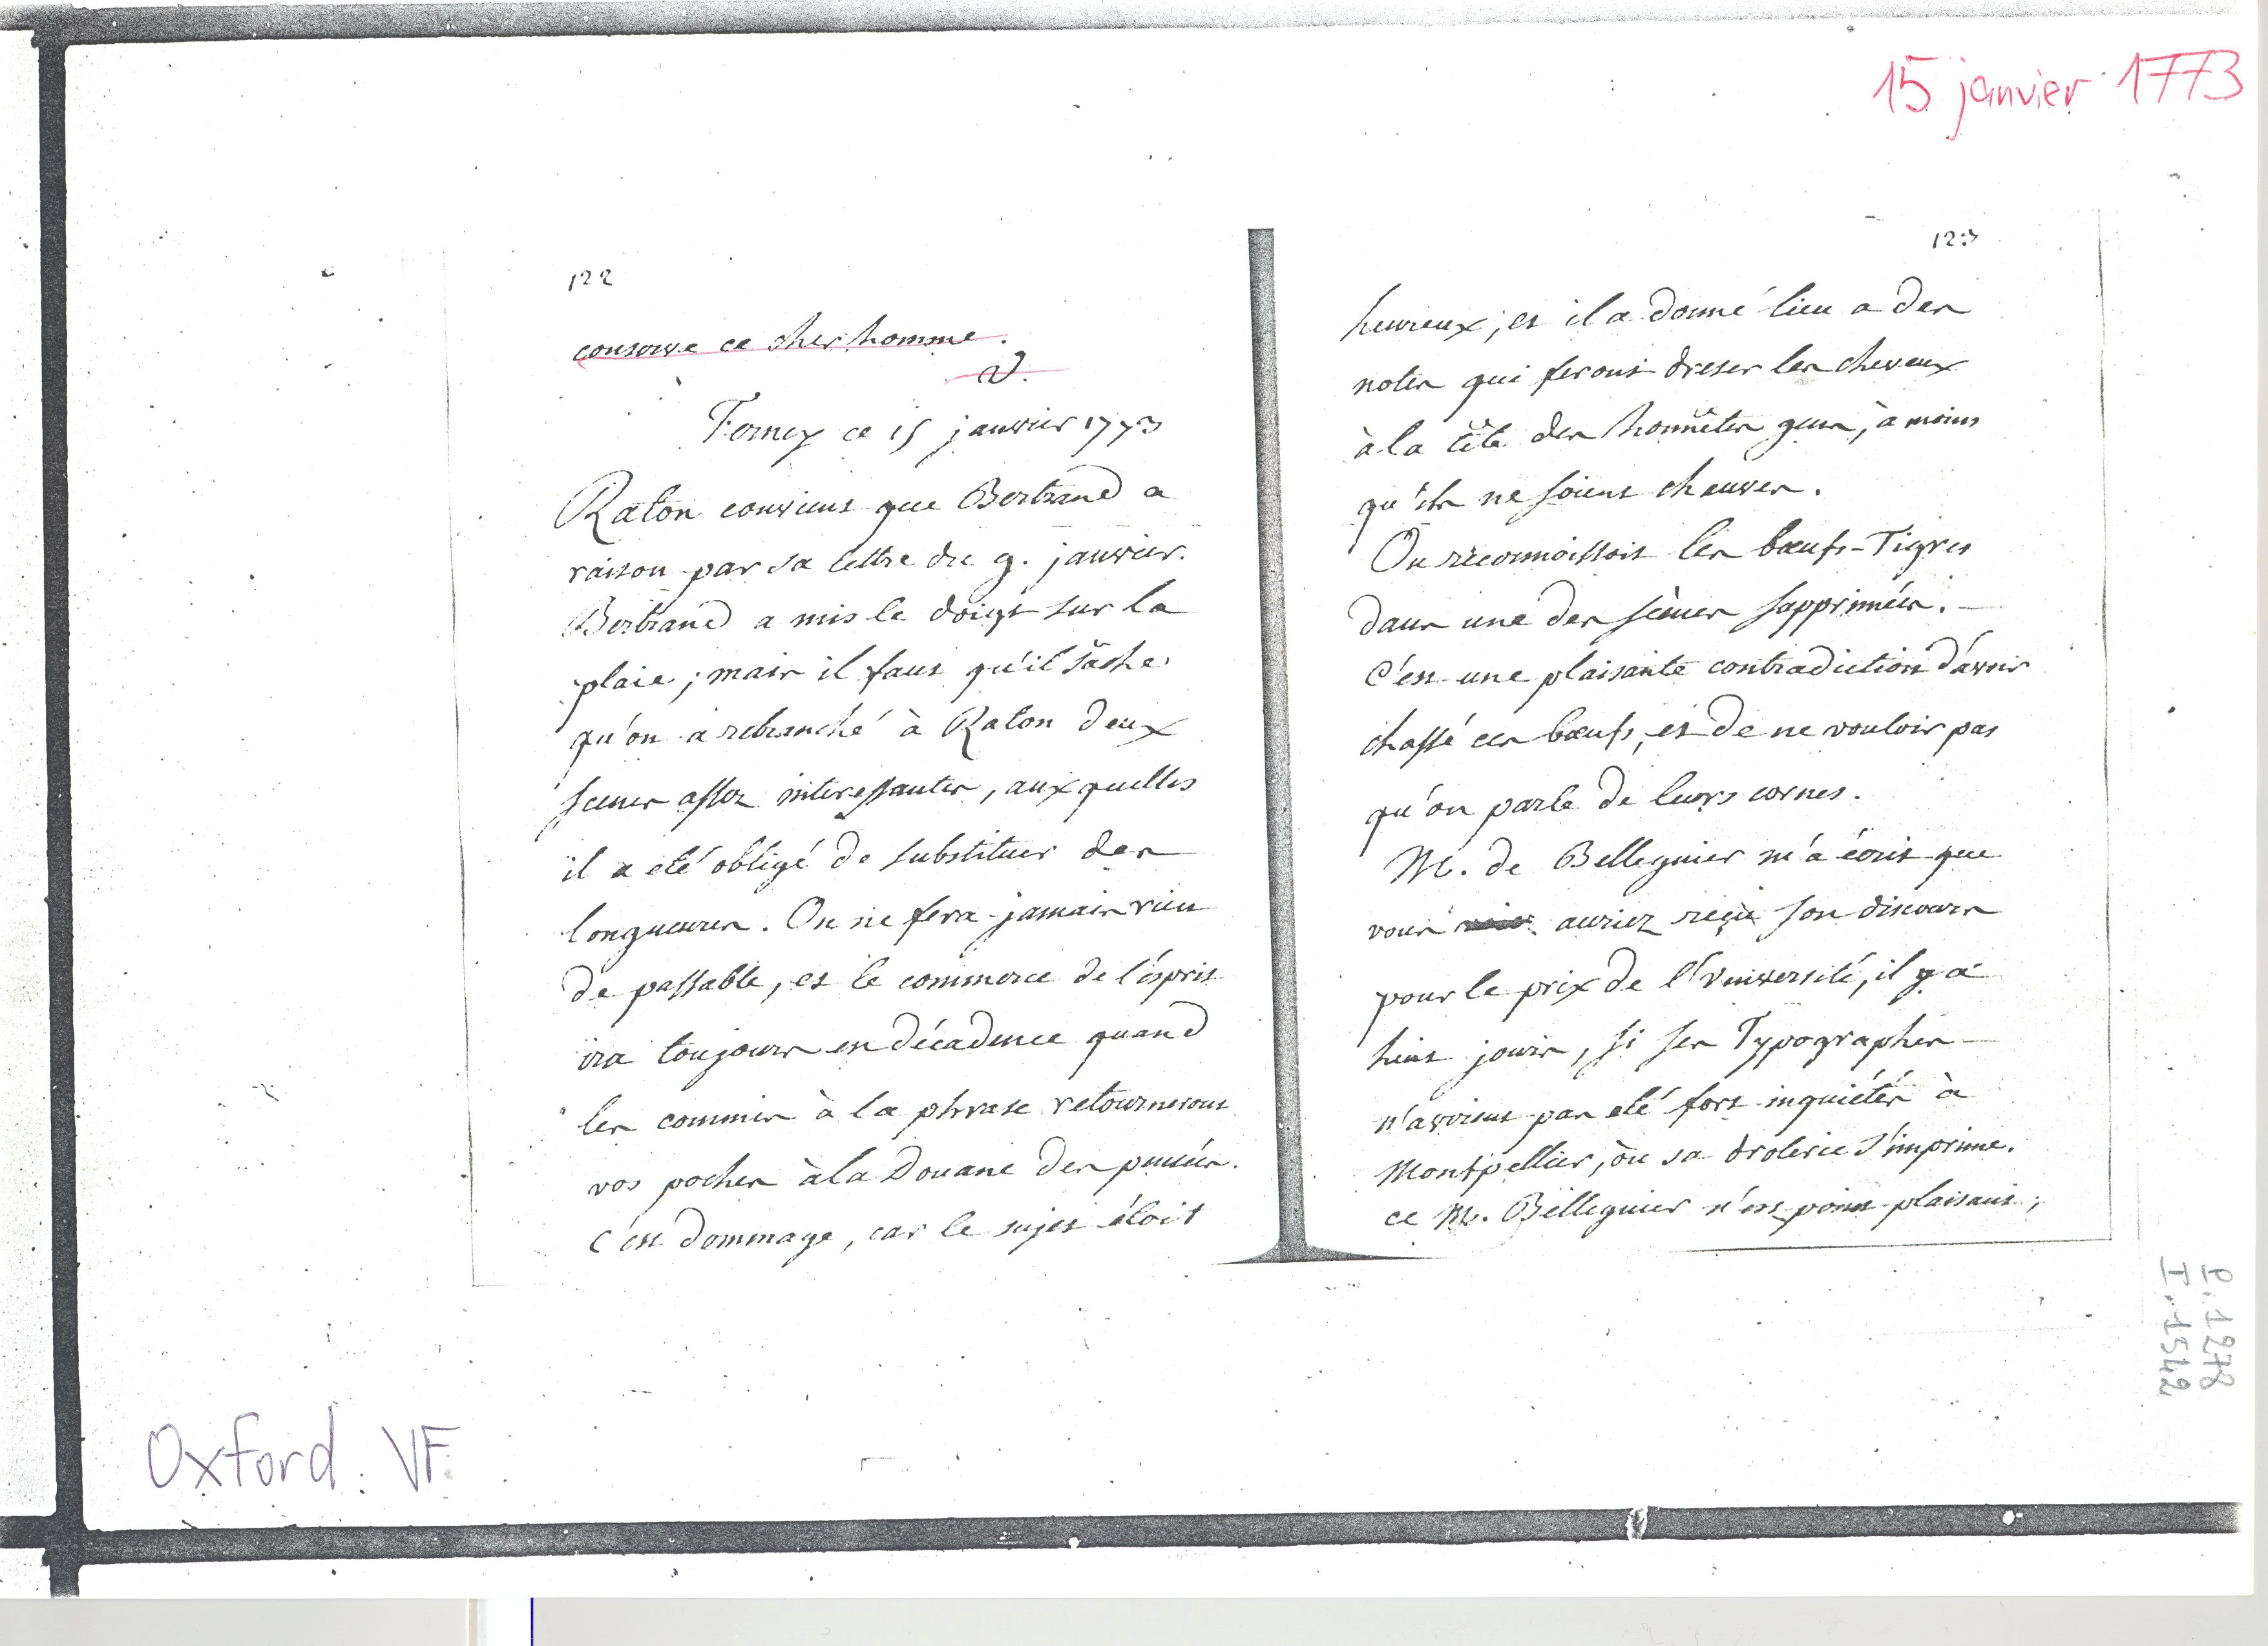 15 janvier 1773
122
conserve ce cher homme.
V.
Ferney ce 15 janvier 1773
Raton convient que Bertrand a
raison par sa lettre du 9. janvier.
Bertrand a mis le doigt sur la
plaie; mais il faut qu'il sache
qu'on a retranché à Raton deux
scenes assez interessantes, auxquelles
il a eté obligé de substituer des
longueurs. On ne fera jamais rien
de passable, et le commerce de l'ésprit
ira toujours en décadence quand
les commis à la phrase retourneront
vos poches à la Douane des pensées.
C'est dommage, car le sujet étoit
123
heureux; et il a donné lieu a des
notes qui feront dreser les cheveux
à la tête des honnêtes gens, à moins
qu'ils ne soient chauves.
On reconnoissoit les bœufs-Tigres
dans une des scènes supprimées.
C'est une plaisante contradiction d'avoir
chassé ces bœufs, et de ne vouloir pas
qu'on parle de leurs cornes.
M. de Belleguier m'a écrit que
vous auriez reçu son discours
pour le prix de l'Université, il y a
huit jours, si ses Typographes
n'avoient pas eté fort inquiétés à
Montpellier, où sa drolerie s'imprime.
ce M. Belleguier n'est point plaisant;
P. 1278
I. 1342
Oxford. VF